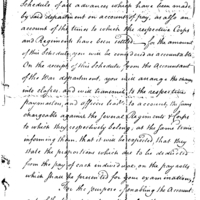 Schedule of all advances which have been made
by said department on account of pay, as also an
account of the times to which the respective Corps
and Regiments have been settled for the amount
of this Schedule, you will be considered as accountable
On the receipt of this Schedule from the Accountant
of the War department, you will arrange the evi
into classes and will transmit to the respective
paymasters, and officers liable to account, the sums
chargeable against the several Regiments & Corps
to which they respectively belong, at the same time
informing them that it will be expected that they
state the proportions which are to be deducted
from the pay of each individual, on the pay rolls
which shall be presented for your examination
For the purpose of enabling the Account